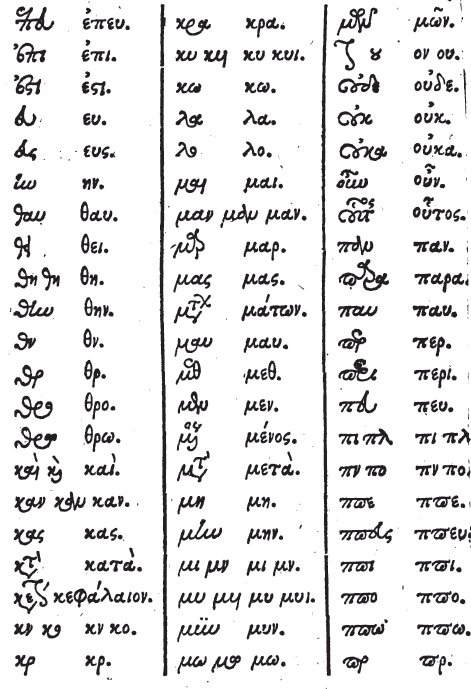 ἐπευ ἐπευ.
ἐπι ἐπι.
ἐϛι ἐϛι.
ευ ευ.
ευς ευς.
ην ην.
θαυ θαυ.
θει θει.
θη θη θη.
θην θην.
θν θν.
θρ θρ.
θρο θρο.
θρω θρω.
καὶ καὶ καὶ.
καν καν καν.
κας κας.
κατὰ κατὰ.
κεφάλαιον κεφάλαιον.
κν κο κν κο.
κρ κρ.
κρα κρα.
κυ κυι κυ κυι.
κω κω.
λα λα.
λο λο.
μαι μαι.
μαν μαν μαν.
μαρ μαρ.
μας μας.
μάτων μάτων.
μαυ μαυ.
μεθ μεθ.
μεν μεν.
μένος μένος.
μετὰ μετὰ.
μη μη.
μην μην.
μι μν μι μν.
μυ μυι μυ μυι.
μυν μυν.
μω μω μω.
μῶν μῶν.
ον ου ον ου.
οὐδε οὐδε.
οὐκ οὐκ.
οὐκα οὐκά.
οὖν οὖν.
οὗτος οὗτος.
παν παν.
παρα παρα.
παυ παυ.
περ περ.
περι περί.
πευ πευ.
πι πλ πι πλ
πν πο πν πο.
ππε ππε.
ππευς ππευ
ππι ππι.
ππο ππο.
ππω ππω.
πρ πρ.